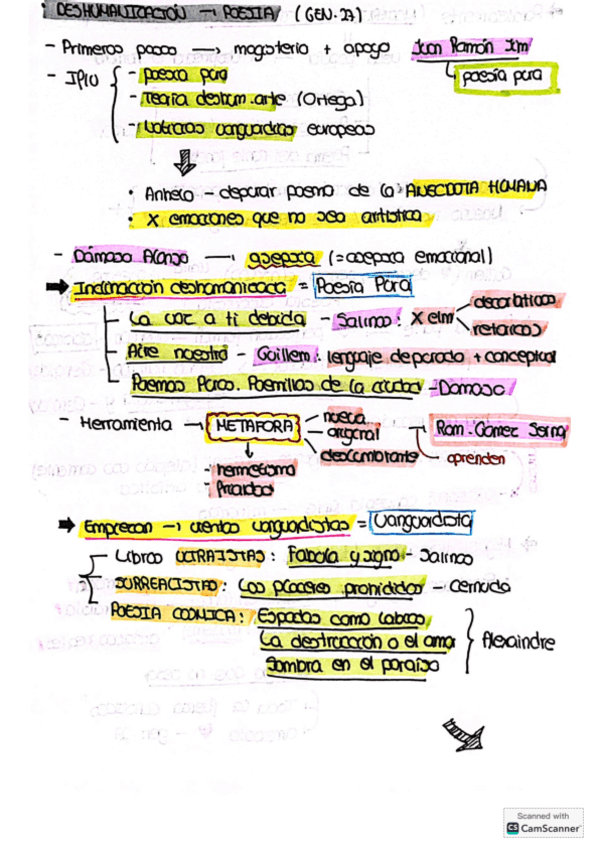 DESHUMANIZACIÓN → POESÍA (GEN. 27)
- Primeros pasos → magisterio + apoyo Juan Ramón Jim
poesía pura
- poesía pura
- Teoría deshum. arte (Ortega)
- vanguardias europeas
• Anhelo - depurar poema de la ANÉCDOTA HUMANA
• X emociones que no sea artística
- Dámaso Alonso → asepsia (= asepsia emocional)
➡ Inclinación deshumanizada = Poesía Pura
La voz a ti debida - Salinas: X elm
decorativos
retóricos
Aire nuestro - Guillem: lenguaje depurado + conceptual
Poemas Puros. Poemillas de la ciudad - Dámaso
- Herramienta → METÁFORA
nueva
original
deslumbrante
Ram. Gómez Serna
aprenden
- hermetismo
➡ Empiezan → vientos vanguardistas = Vanguardista
Libros ULTRAÍSTAS: Fábula y signo - Salinas
SURREALISTAS: Los placeres prohibidos - Cernuda
POESÍA CÓSMICA: Espadas como labios
La destrucción o el amor
Sombra en el paraíso
Aleixandre
Scanned with
CS CamScanner